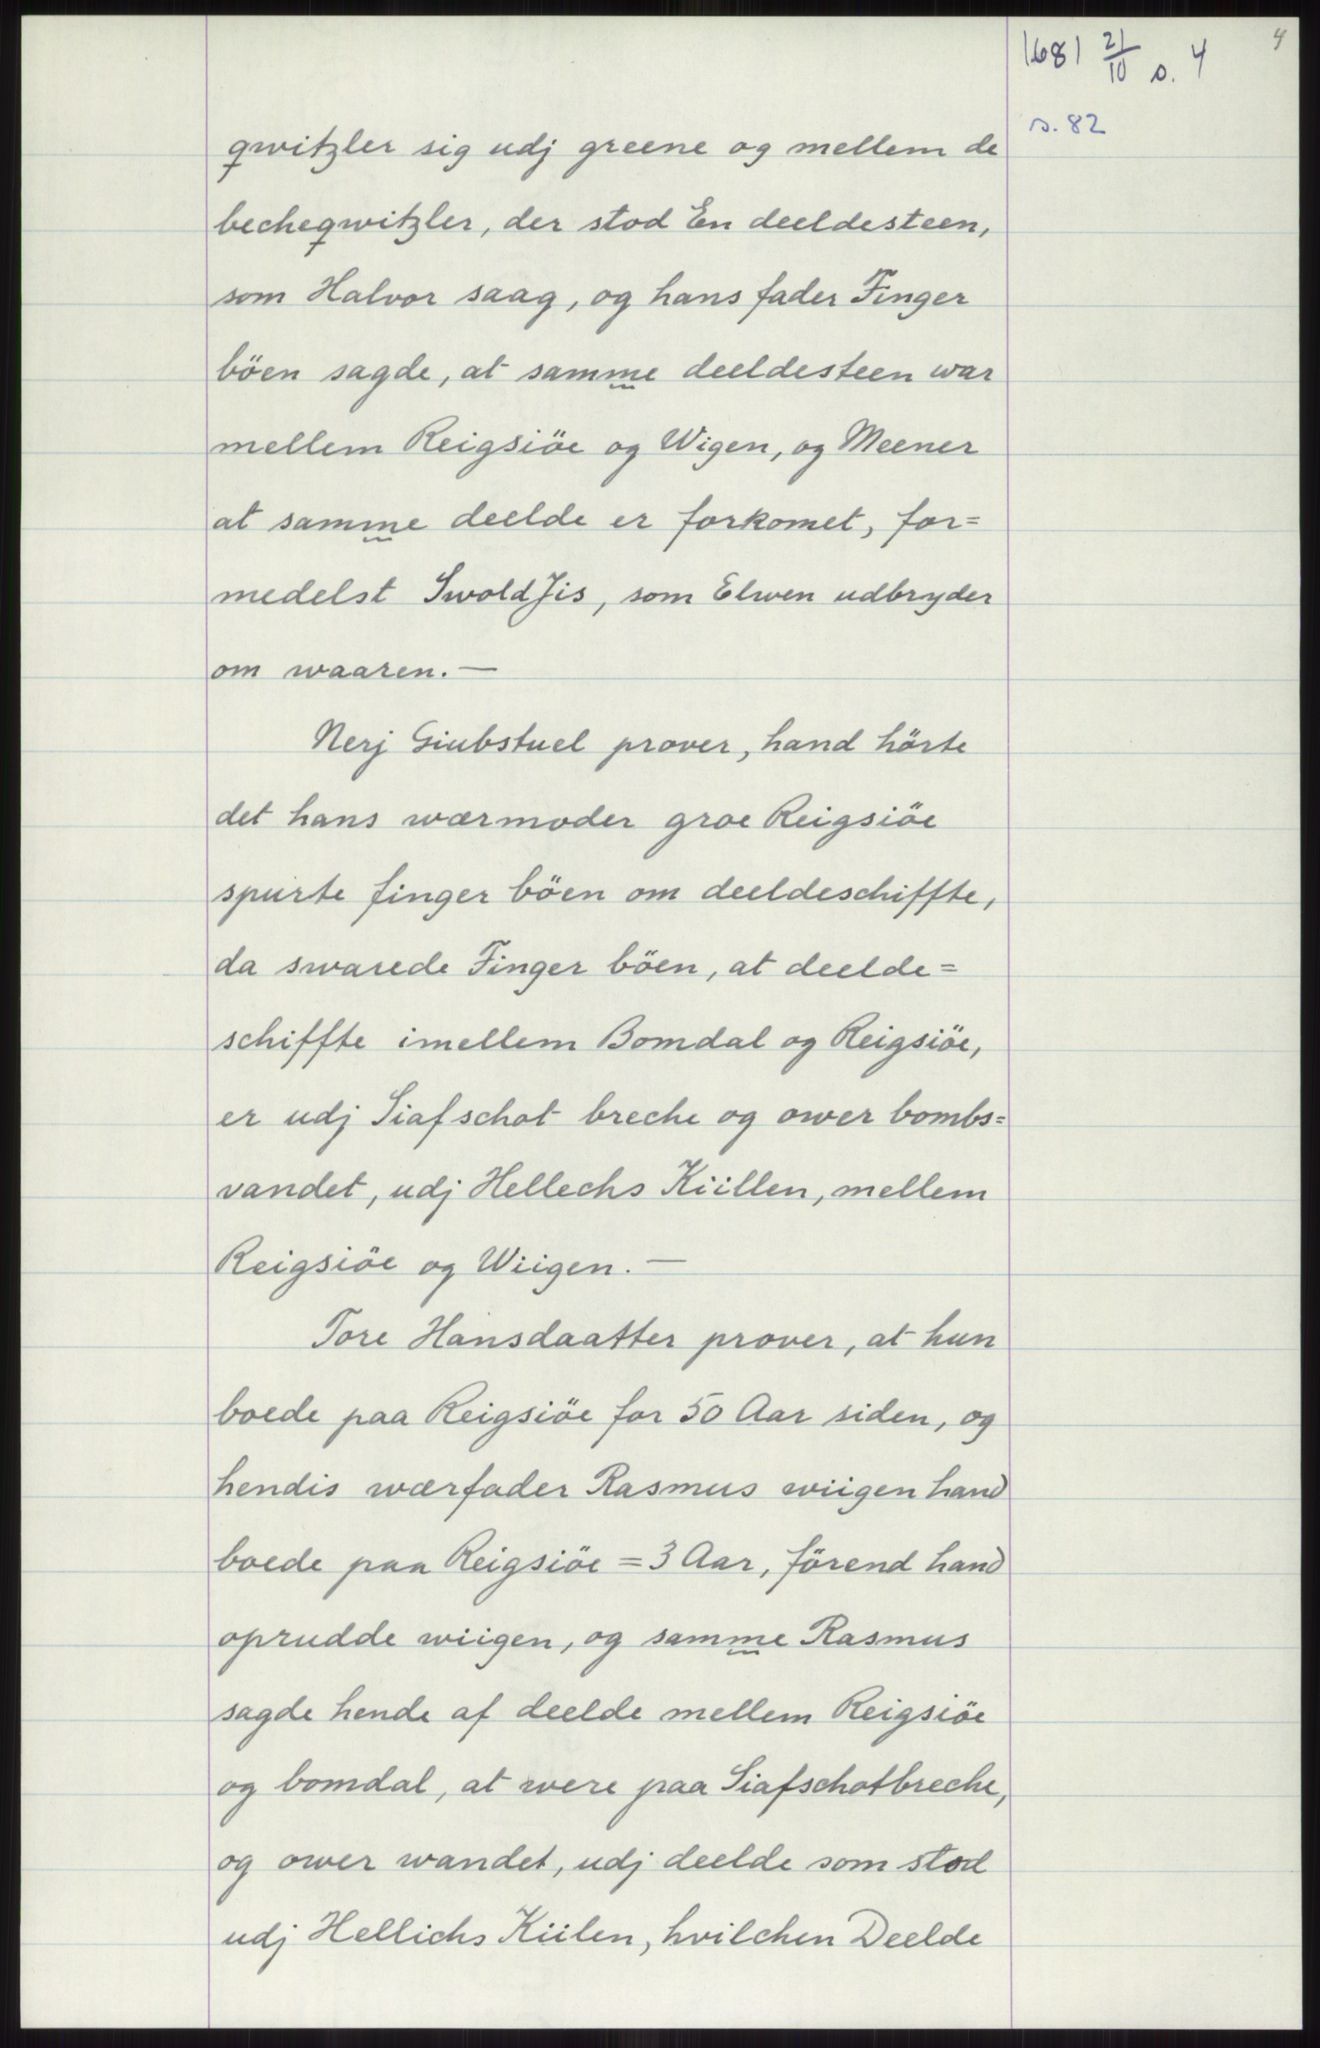 4
1681 21/10 s. 4
s. 82
qwitzler sig udj greene og mellem de
becheqwitzler, der stod En deeldesteen,
som Halvor saag, og hans fader Finger
böen sagde, at samme deeldesteen war
mellem Reigsiöe og Wigen, og Meener
at samme deelde er forkomet, for=
medelst SwoldJis, som Elwen udbryder
om waaren. —
Nerj Giubstuel prover, hand hörte
det hans wærmoder groe Reigsiöe
spurte finger böen om deeldeschiffte,
da swarede Finger böen, at deelde=
schiffte imellem Bomdal og Reigsiöe,
er udj Siafschot breche og ower bombs=
vandet, udj Hellechs Kiillen, mellem
Reigsiöe og Wiigen. —
Tore Hansdaatter prover, at hun
boede paa Reigsiöe for 50 Aar siden, og
hendis wærfader Rasmus wiigen hand
boede paa Reigsiöe = 3 Aar, förend hand
oprudde wiigen, og samme Rasmus
sagde hende af deelde mellem Reigsiöe
og bomdal, at were paa Siafschotbreche,
og ower wandet, udj deelde som stod
udj Hellichs Kiilen, hvilchen Deelde